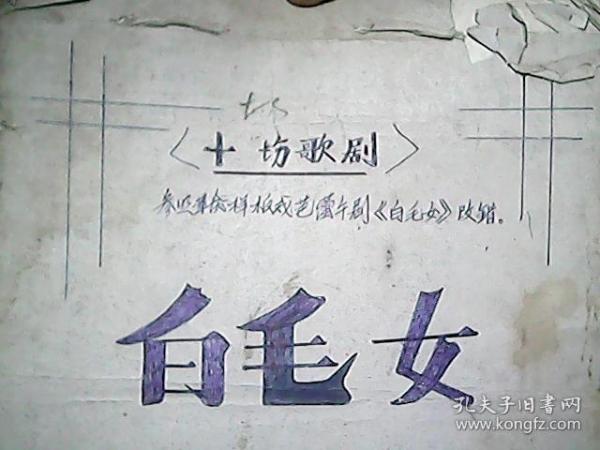 〈十坊歌剧〉
参照革命样板戏芭蕾午剧《白毛女》改错。
白毛女
孔夫子旧書网
www.kongfz.com